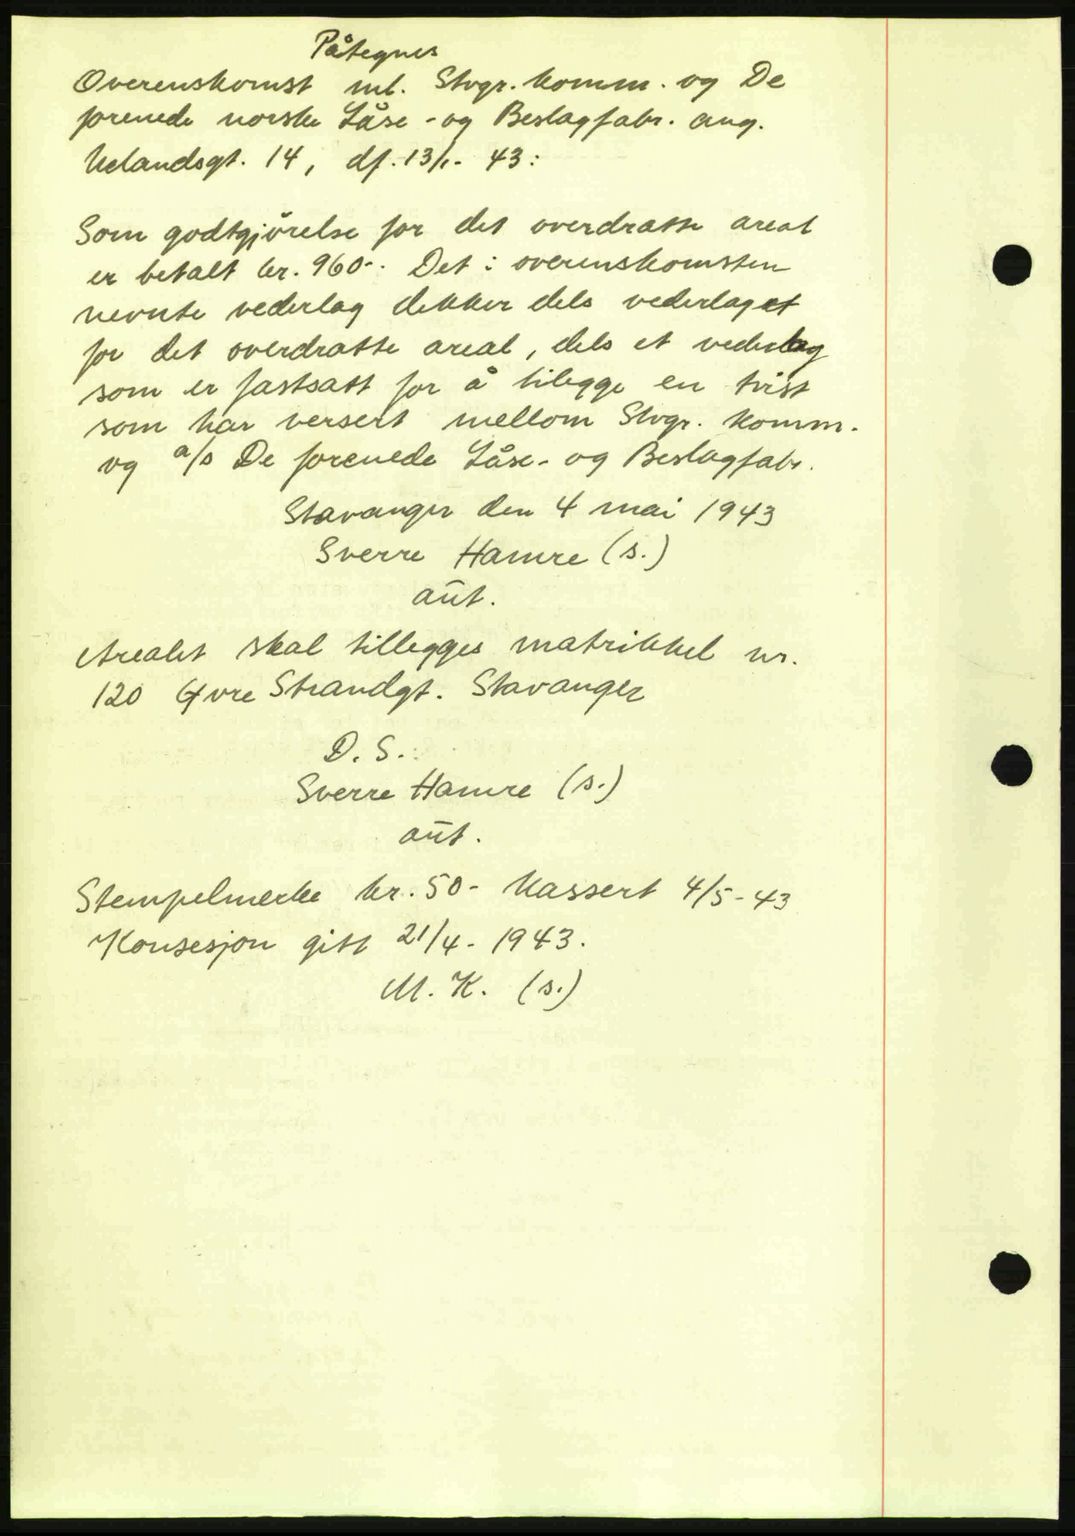 Påtegnes
Overenskomst ml. Stvgr. komm. og De
forenede norske Låse- og Beslagfabr. ang.
Uelandsgt. 14, df. 13/1- 43:
Som godtgjørelse for det overdratte areal
er betalt kr. 960-. Det i overenskomsten
nevnte vederlag dekker dels vederlaget
for det overdratte areal, dels et vederlag
som er fastsatt for å bilegge en tvist
som har versert mellom Stvgr. komm.
og a/s De forenede Låse- og Beslagfabr.
Stavanger den 4 mai 1943
Sverre Hamre (s.)
aut.
Arealet skal tillegges matrikkel nr.
120 Øvre Strandgt. Stavanger
D. S.
Sverre Hamre (s.)
aut.
Stempelmerke kr. 50- kassert 4/5-43
Konsesjon gitt 21/4- 1943.
M. K. (s.)